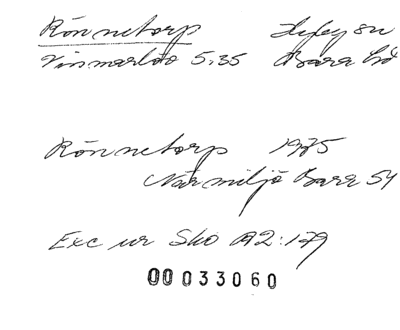 Rönnetorp Hyby sn
Vismarlöv 5:35 Bara hd
Rönnetorp 1975
Närmiljö Bara 54
Exc ur Sko A2:179
00 033060